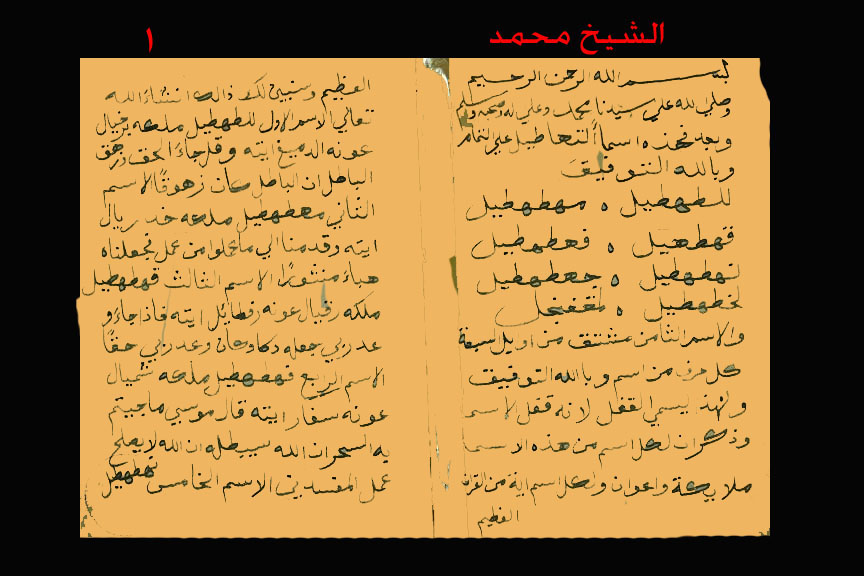 الشيخ محمد
١
بسم الله الرحمن الرحيم
وصلي لله علي سيدنا محمد وعلي له وصحبه وسلم
وبعد فهذه اسماً التهاطيل علي التمام
وبالله التوفيق
للطهطيل ٥ مهطهطيل
قهطهيل ٥ فهطهطيل
نههططيل ٥ جهطهطيل
لخهطهطيل ٥
والاسم الثامن مشتق من اويل السبعة
كل حرف من اسم وبالله التوفيق
ولهذ يسمي القفل لانه قفل لاسما
وذكران لكل اسم من هذه الاسما
ملايكة واعوان ولكل اسم اية من القران
العظيم
العظيم وسنبين لك ذالك انشاء الله
تعالي الاسم الاول للطهطيل ملكه
عونه ايته وقل جاء الحق وزهق
الباطل ان الباطل كان زهوقا الاسم
الثاني مهطهطيل ملكه
ايته وقدمنا الي ما عملوا من عمل فجعلناه
هباء منثورًا الاسم الثالث قهطهطيل
ملكه عونه ايته فاذا جاء و
عد ربي جعله دكا وكان وعد ربي حقًا
الاسم الرابع فهطهطيل ملكه
عونه ايته قال موسي ما جيتم
به السحر ان الله سيبطله ان الله لا يصلح
عمل المفسدين الاسم الخامس نههططيل